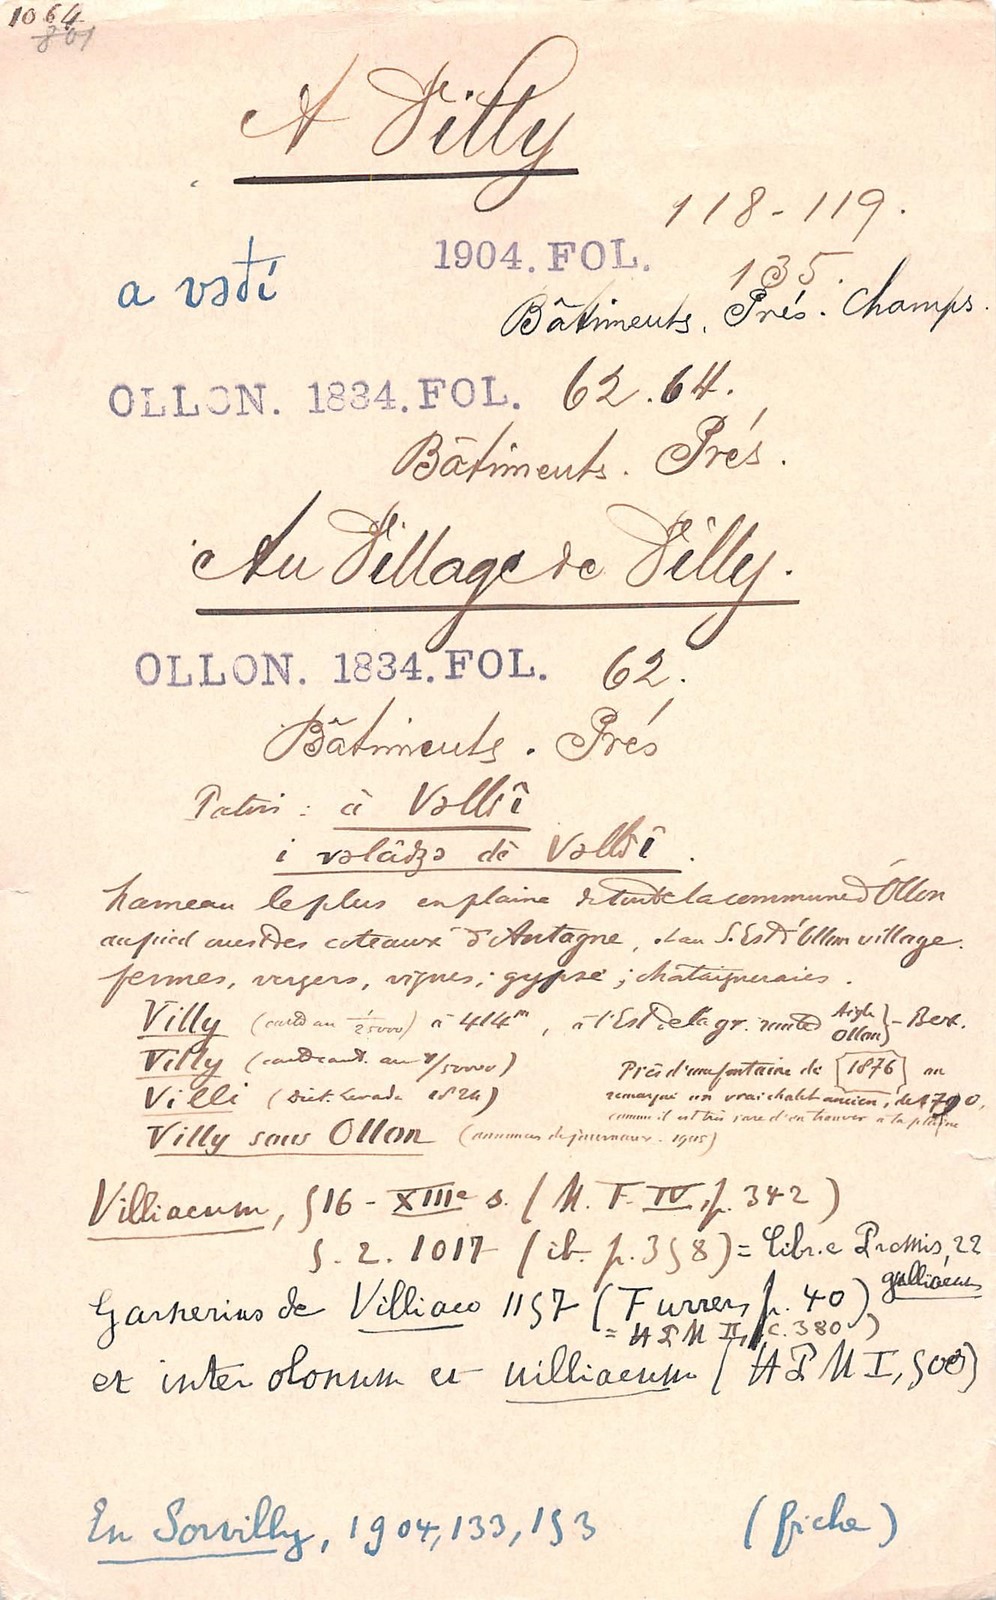 1064
801
A Villy
118-119.
1904. FOL.
135.
a vəđí
Bâtiments. Prés. Champs.
OLLON. 1834. FOL. 62.64.
Bâtiments. Prés.
Au Village de Villy.
OLLON. 1834. FOL. 62.
Bâtiments. Prés
Patois : à Vəllî
i vəlâdzə dè Vəllî.
hameau le plus en plaine de toute la commune d'Ollon
au pied ouest des coteaux d'Antagne, et au S. Est d'Ollon village.
fermes, vergers, vignes; gypse; châtaigneraies.
Villy (carte au 1/25000) à 414m, à l'Est de la gr. route Aigle Ollon - Bex.
Villy (au 1/50000)
Villi (Dict. Levade 1824)
Villy sous Ollon (annonces de journaux. 1905)
Près d'une fontaine de 1876 on
remarque un vrai chalet ancien, de 1790,
comme il est très rare d'en trouver à la plaine
Villiacum, 516 - XIIIe s. (M. F. IV, p. 342)
S. 2. 1017 (ib. p. 358) = Cibr. e Promis, 22
gulliacum
de Villiaco 1157 (Furrer, p. 40)
= HPM II, c. 380)
et inter olonum et uilliacum (HPM I, 500)
En Sorvilly, 1904, 133, 153 (fiche)